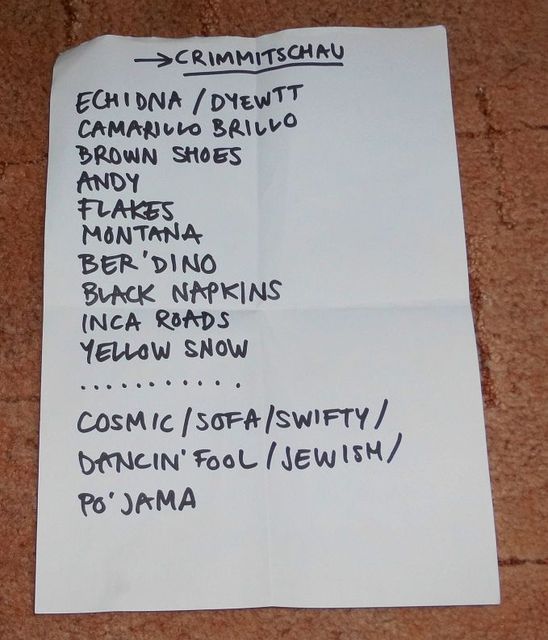 →CRIMMITSCHAU
ECHIDNA / DYEWTT
CAMARILLO BRILLO
BROWN SHOES
ANDY
FLAKES
MONTANA
BER'DINO
BLACK NAPKINS
INCA ROADS
YELLOW SNOW
...........
COSMIC/SOFA/SWIFTY/
DANCIN' FOOL/JEWISH/
PO'JAMA